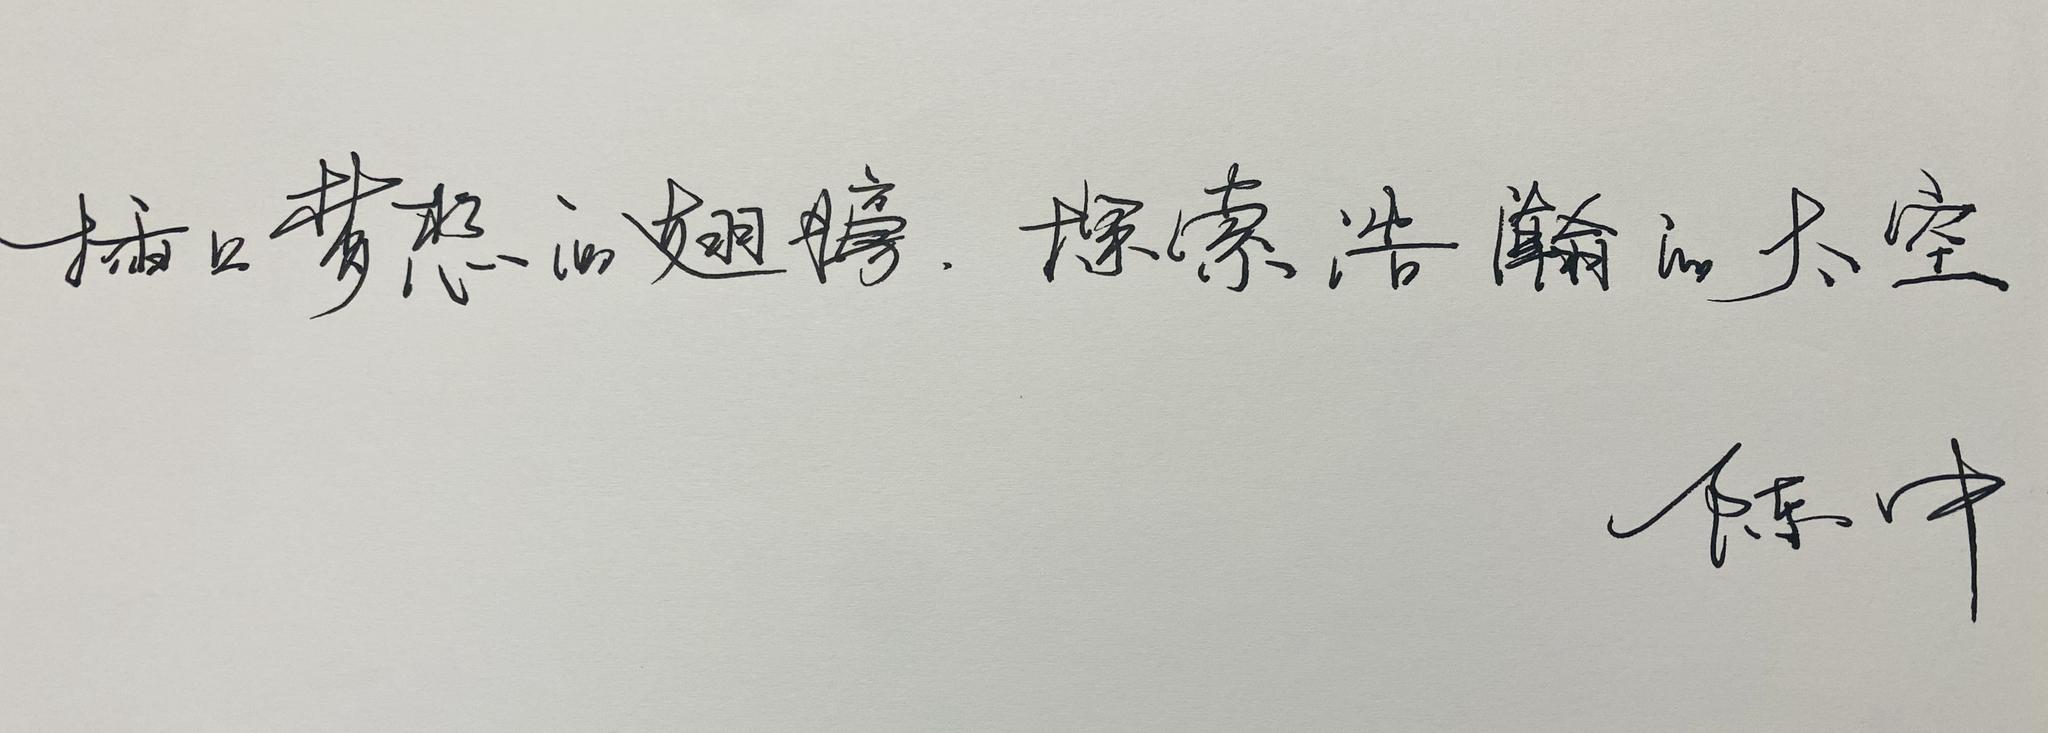 插上梦想的翅膀.探索浩瀚的太空
陈中